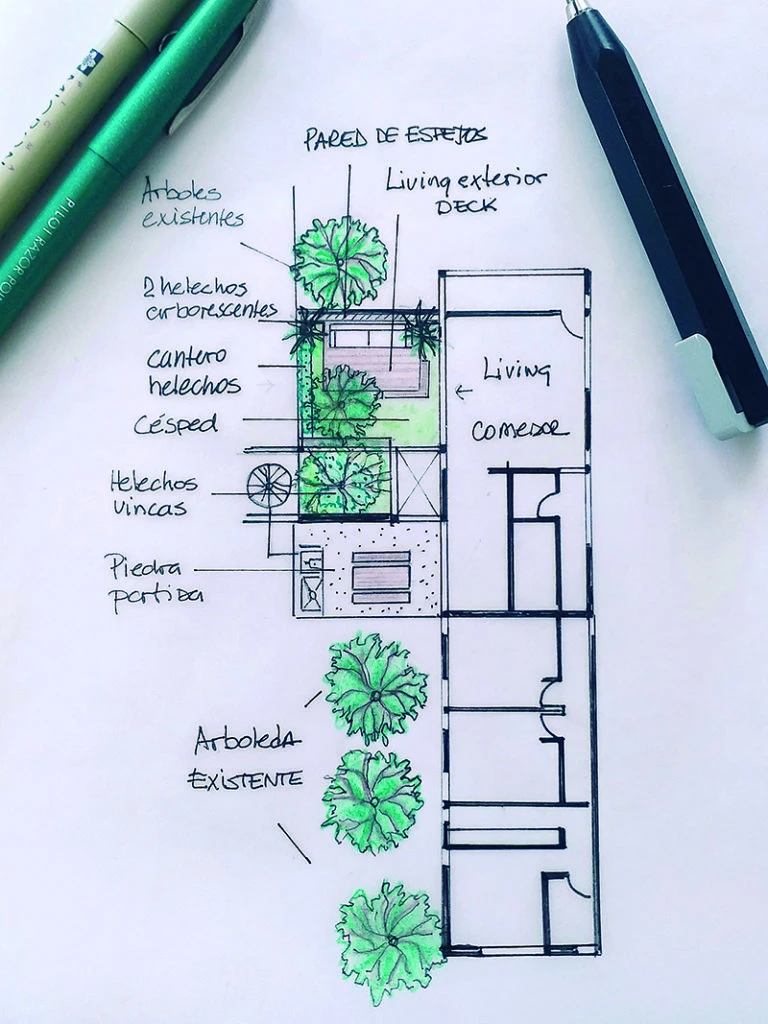 PARED DE ESPEJOS
Living exterior
DECK
Arboles
existentes
2 helechos
arborescentes
cantero
helechos
césped
Helechos
vincas
Piedra
partida
Living
comedor
Arboleda
EXISTENTE
PILOT RAZOR POI